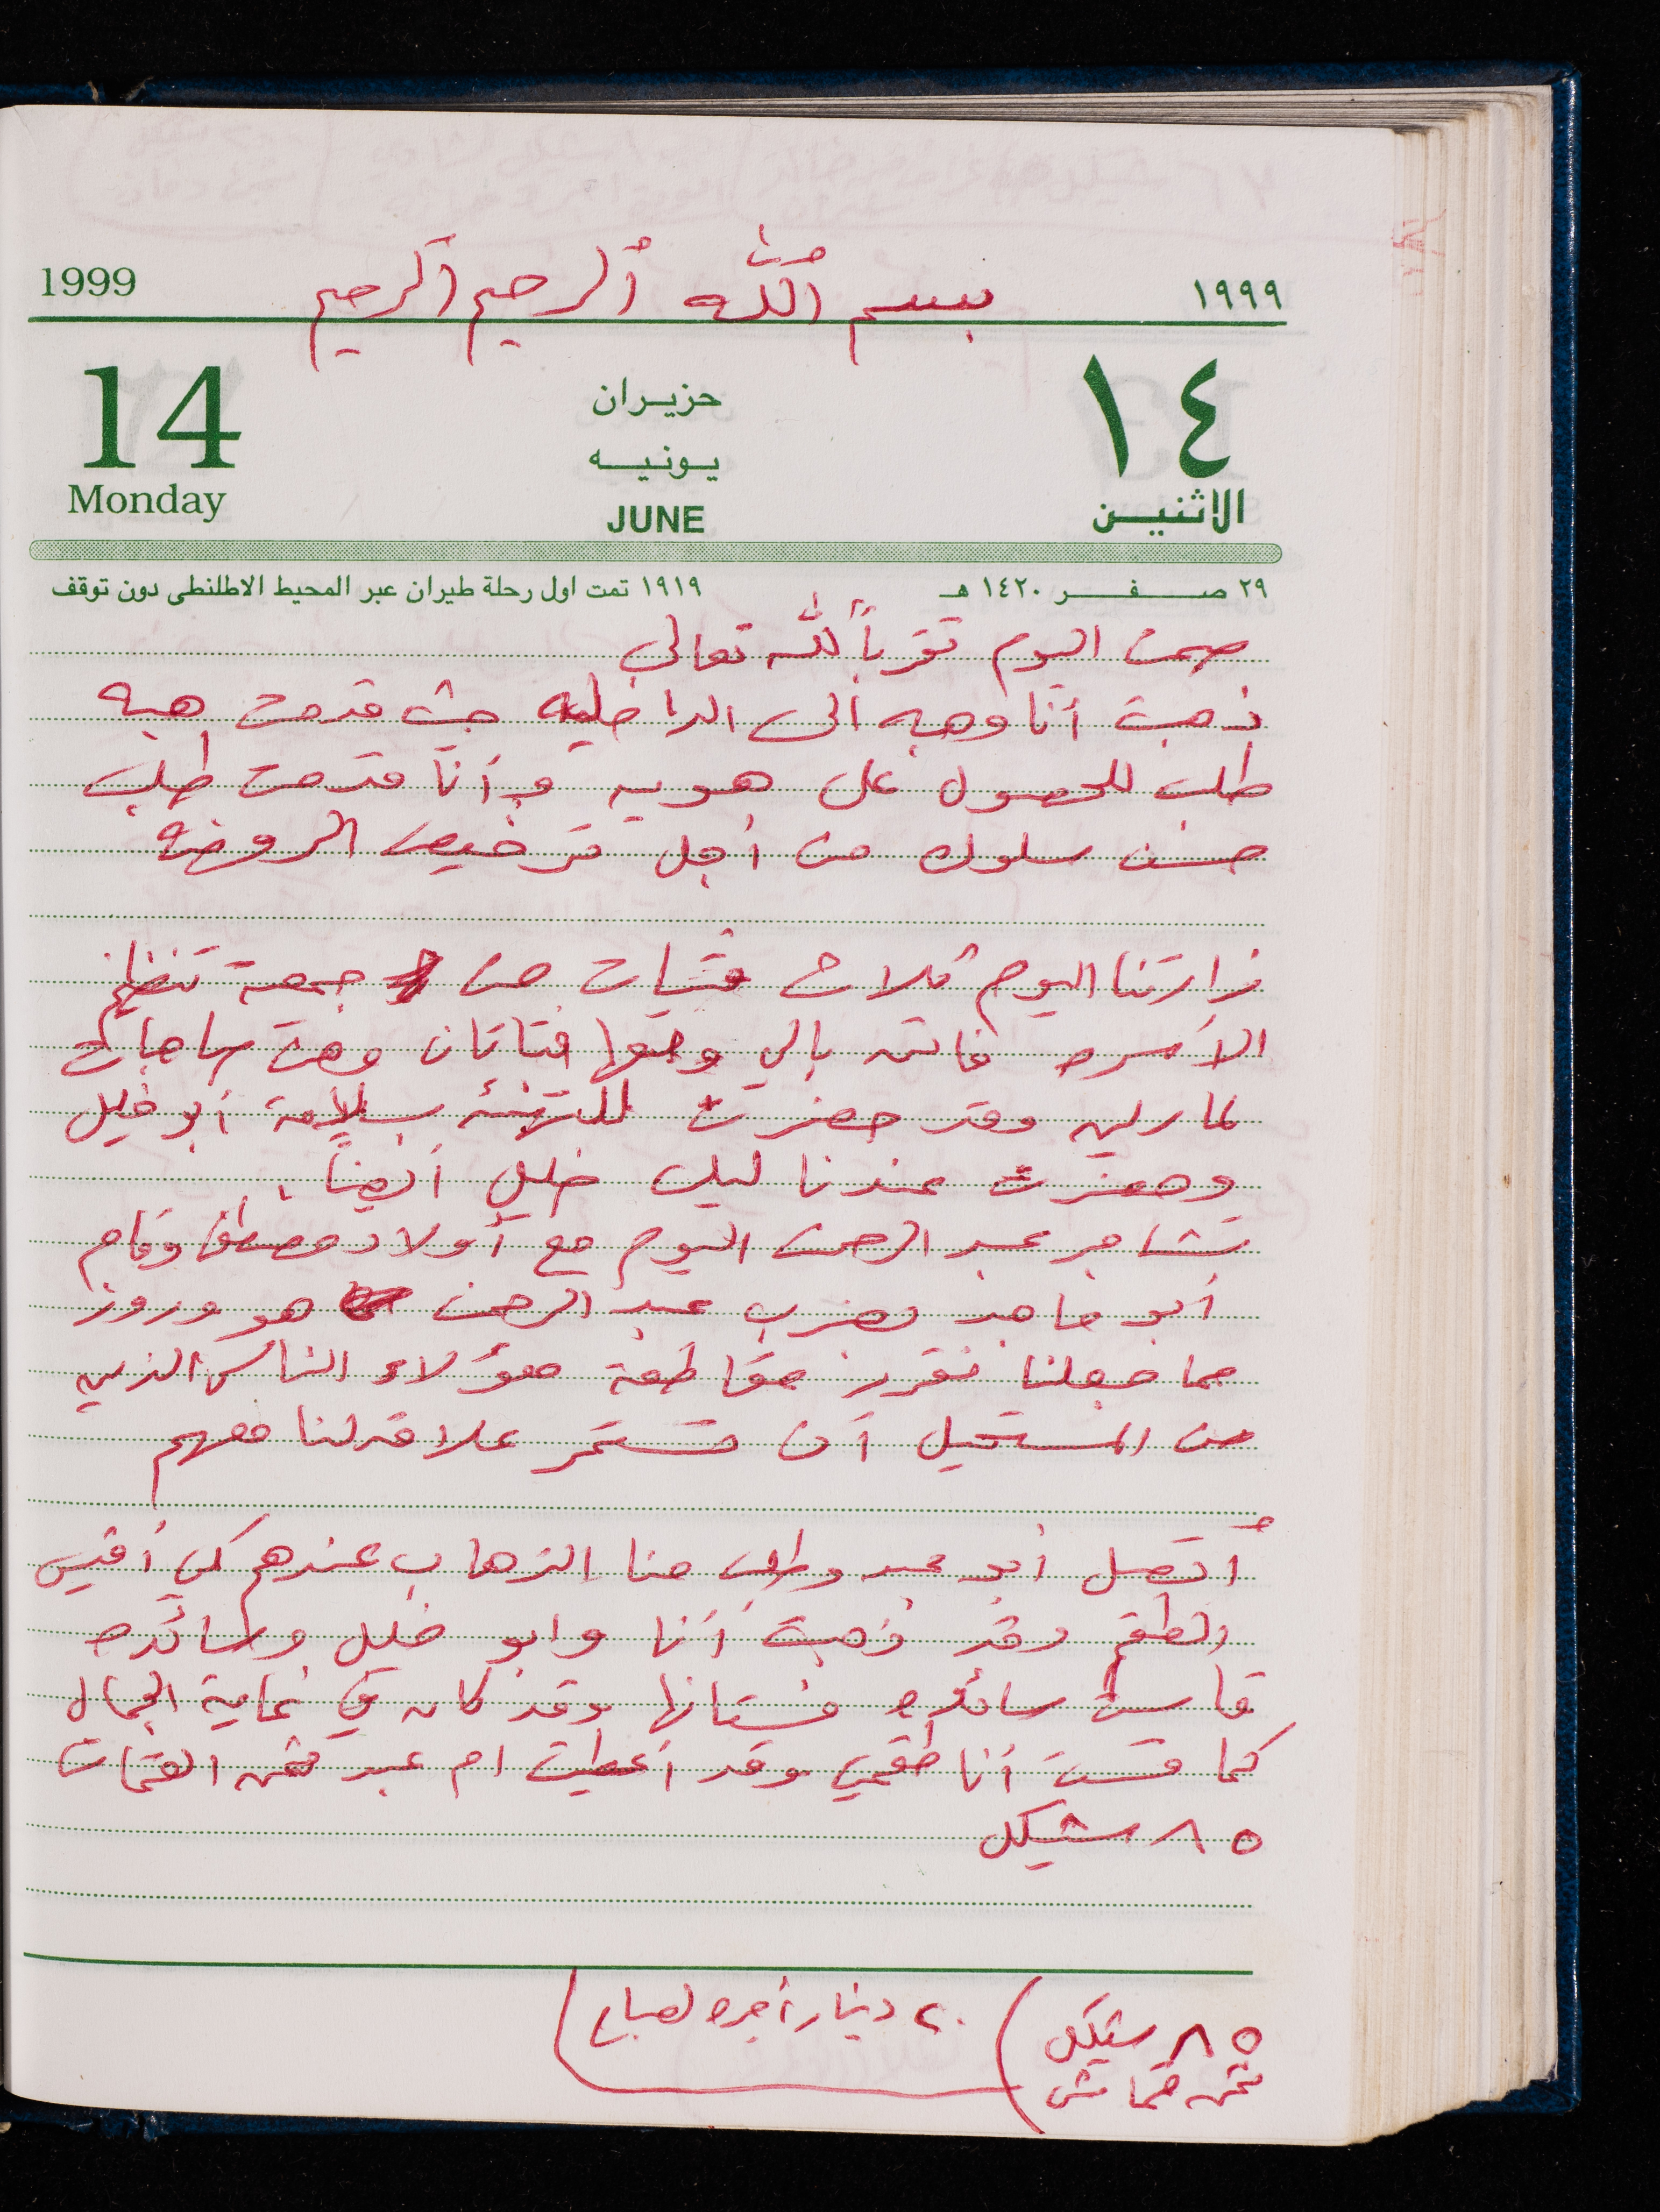 1999 بسم الله الرحمن الرحيم ١٩٩٩
14 حزيران ١٤
يونيه
Monday JUNE الاثنين
٢٩ صفر ١٤٢٠ هـ ١٩١٩ تمت اول رحلة طيران عبر المحيط الاطلنطى دون توقف
صمت اليوم تقرباً لله تعالى
ذهبت أنا وهبه الى الداخليه حيث قدمت هبه
طلب للحصول على هويه و أنا قدمت طلب
حسن سلوك من أجل ترخيص الروضه
زارتنا اليوم ثلاث فتيات من جمعية تنظيم
الأسره فاتنه بالي ومعها فتاتان وهن
وقد حضرت للتهنئه بسلامة أبو خليل
وحضرت عندنا ليلى خليل أيضاً.
تشاجر عبد الرحمن اليوم مع أولاد مصطفى وقام
أبو ماجد بضرب عبد الرحمن هو وروز
مما جعلنا نقرر مقاطعة هؤلاء الناس الذين
من المستحيل أن تستمر علاقه لنا معهم
أتصل أبو عبد وطلب منا الذهاب عندهم كي أقيس
الطقم وقد ذهبت أنا وابو خليل وسائده
قاست سائده فستانها وقد كان في غاية الجمال
كما قست أنا طقمي وقد أعطيت ام عبد ثمن القماش
٨٥ شيكل
٨٥ شيكل ٢٠ دينار أجره لصباح
ثمن قماش